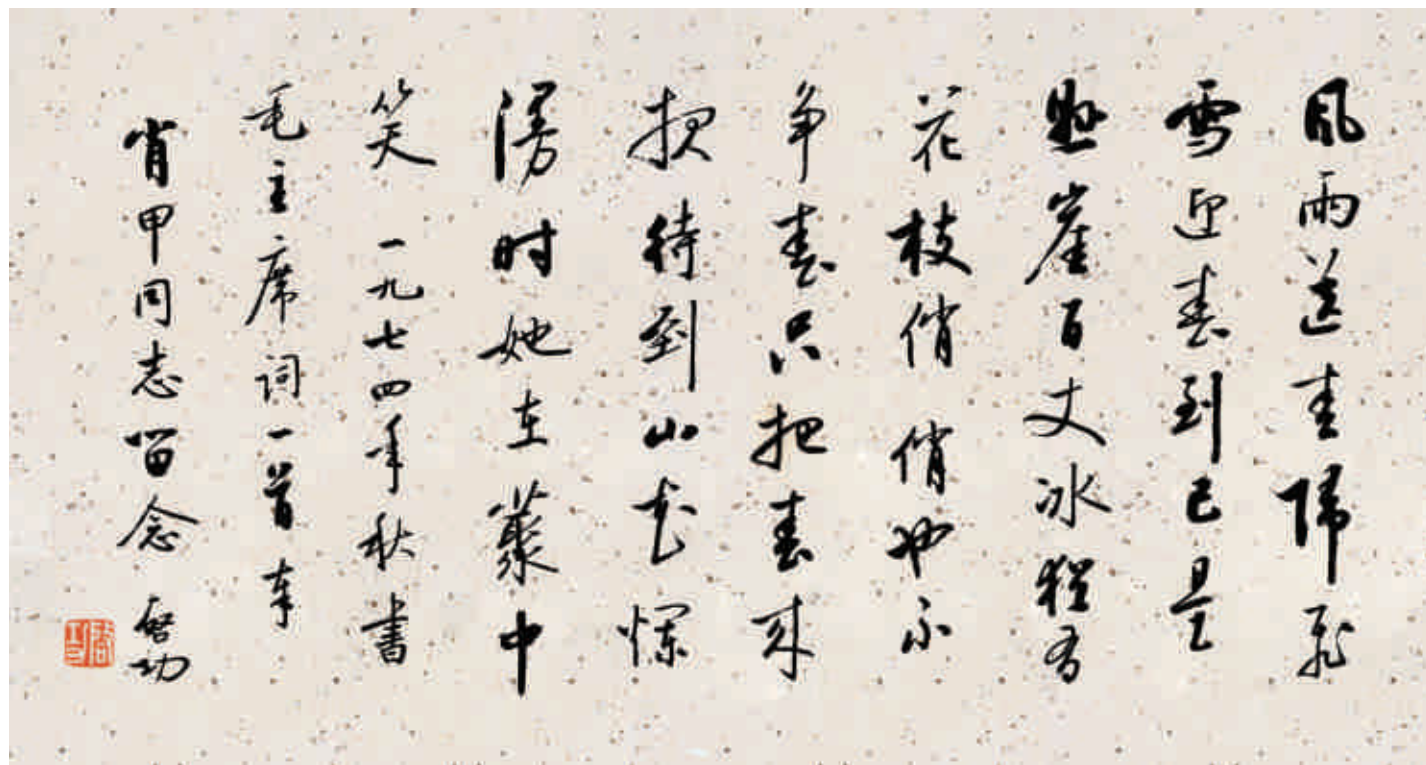 風雨送春歸飛
雪迎春到已是
懸崖百丈冰猶有
花枝俏俏也不
争春只把春来
报待到山花爛
漫时她在叢中
笑 一九七四年秋書
毛主席词一首奉
肖甲同志留念 啓功